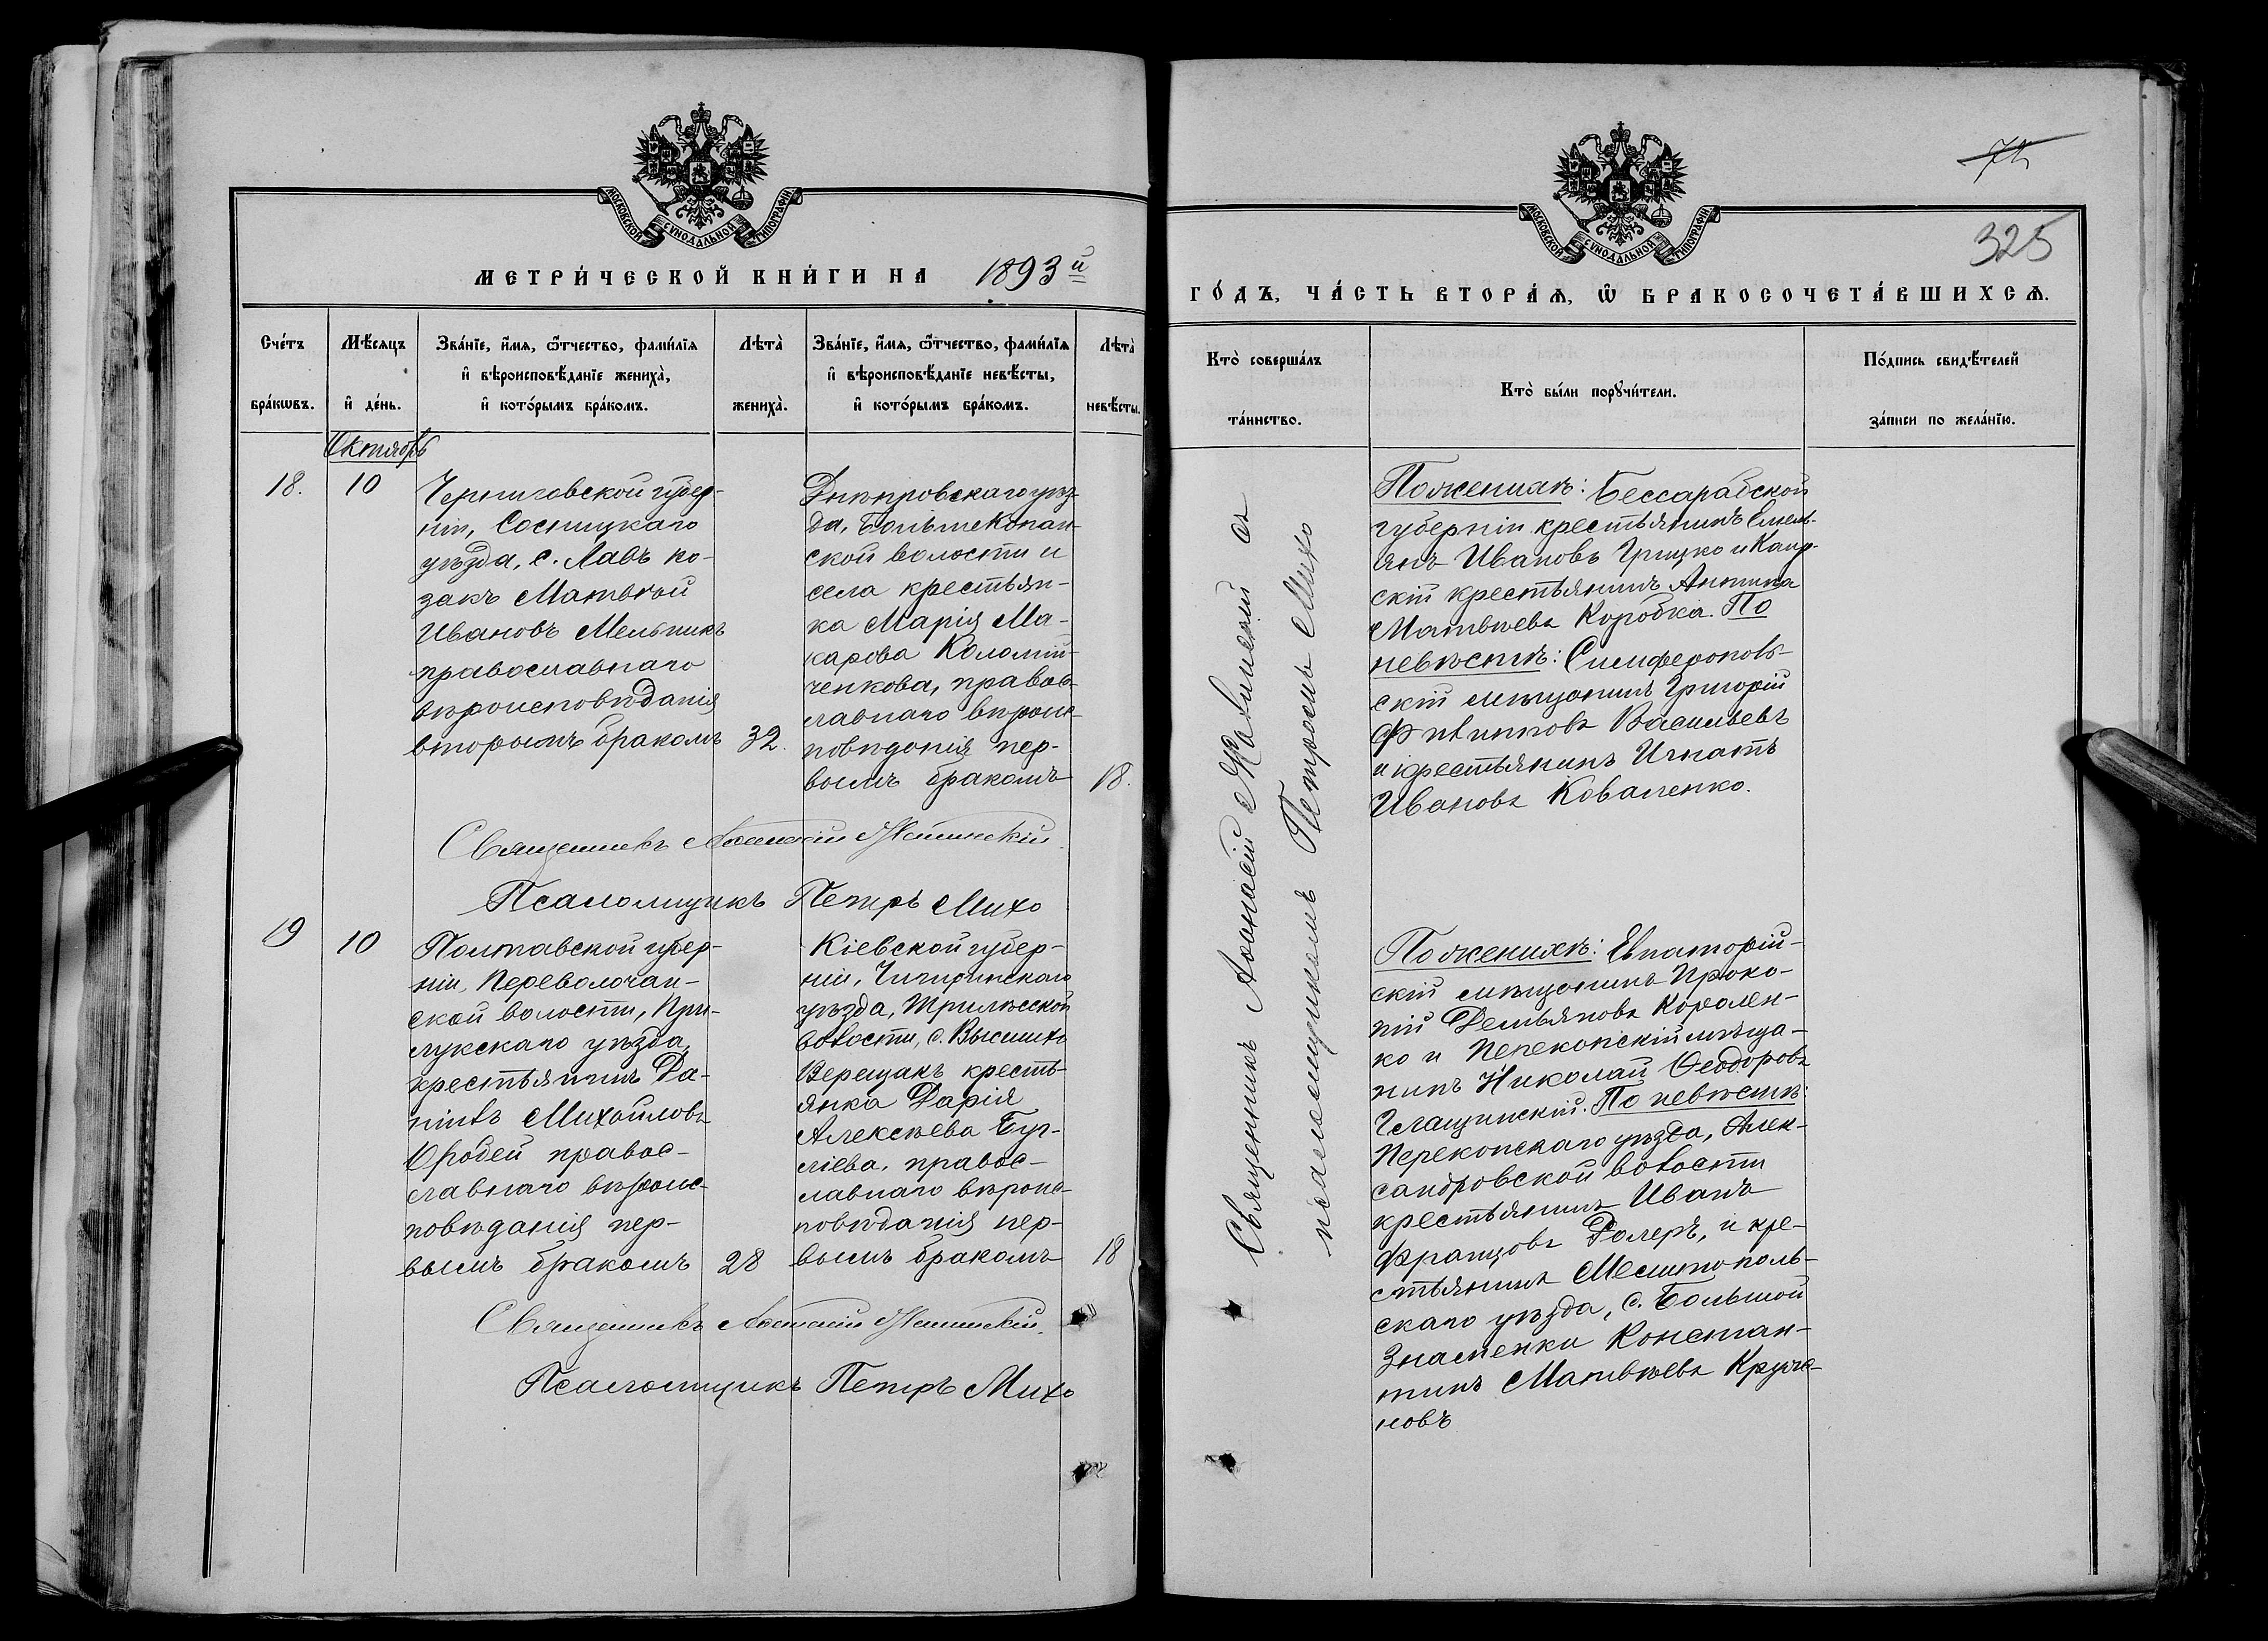 МОСКОВСКОЙ СУНОДАЛЬНОЙ ТИПОГРАФІИ
МЕТРИ́ЧЕСКОЙ КНИ́ГИ НА 1893й
Сче́тъ бра́кωвъ.
Мѣ́сяцъ и҆ де́нь.
Зва́нїе, и҆́мя, ѻ҆́тчество, фами́лїя
и҆ вѣроисповѣ́данїе жениха̀,
и҆ кото́рымъ бра́комъ.
Лѣта̀ жениха̀.
Зва́нїе, и҆́мя, ѻ҆́тчество, фами́лїя
и҆ вѣроисповѣ́данїе невѣ́сты,
и҆ кото́рымъ бра́комъ.
Лѣта̀ невѣ́сты.
Октябрь
18.
10
Черниговской губер-
ніи, Сосницкаго
уѣзда, с. Лавъ ко-
закъ Матвѣй
Ивановъ Мельникъ
православнаго
вѣроисповѣданія
вторымъ бракомъ
32.
Днѣпровскаго уѣз-
да, Больше Копан-
ской волости и
села крестьян-
ка Марія Ма-
карова Коломій-
ченкова, правос-
лавнаго вѣроис-
повѣданія пер-
вымъ бракомъ
18.
Священникъ Аѳанасій
Псаломщикъ Петръ Михо
19
10
Полтавской губер-
ніи, Переволочан-
ской волости, При-
лукскаго уѣзда,
крестьянинъ Да-
ніилъ Михайловъ
правос-
лавнаго вѣроис-
повѣданія пер-
вымъ бракомъ
28
Кіевской губер-
ніи, Чигиринскаго
уѣзда, Трилѣсской
волости, с.
Верещакъ кресть-
янка Дарія
Алексѣева Бур-
ліева, правос-
лавнаго вѣроис-
повѣданія пер-
вымъ бракомъ
18
Священникъ Аѳанасій
Псаломщикъ Петръ Михо
72
325
МОСКОВСКОЙ СУНОДАЛЬНОЙ ТИПОГРАФІИ
ГО́ДЪ, ЧА́СТЬ ВТОРА́Я, Ѡ҆ БРАКОСОЧЕТА́ВШИХСЯ.
Кто̀ соверша́лъ та́инство.
Кто̀ бы́ли порꙋчи́тели.
По́дпись свидѣ́телей за́писи по жела́нїю.
Священникъ Аѳанасій съ
псаломщикомъ Петромъ Михо
По женихѣ: Бессарабской
губерніи крестьянинъ Емель-
янъ Ивановъ Грицко и Каир-
скій крестьянинъ Антипа
Матвѣевъ Коробка. По
невѣстѣ: Симферополь-
скій мѣщанинъ Григорій
Филипповъ Васильевъ
и крестьянинъ Игнатъ
Ивановъ Коваленко.
По женихѣ: Евпаторій-
скій мѣщанинъ Проко-
пій Демьяновъ Королен-
ко и Перекопскій мѣща-
нинъ Николай Ѳеодоровъ
По невѣстѣ:
Перекопскаго уѣзда, Алек-
сандровской волости
крестьянинъ Иванъ
Францовъ Ролеръ, и кре-
стьянинъ Мелитополь-
скаго уѣзда, с. Большой
Знаменки Констан-
тинъ Матвѣевъ Круче-
новъ